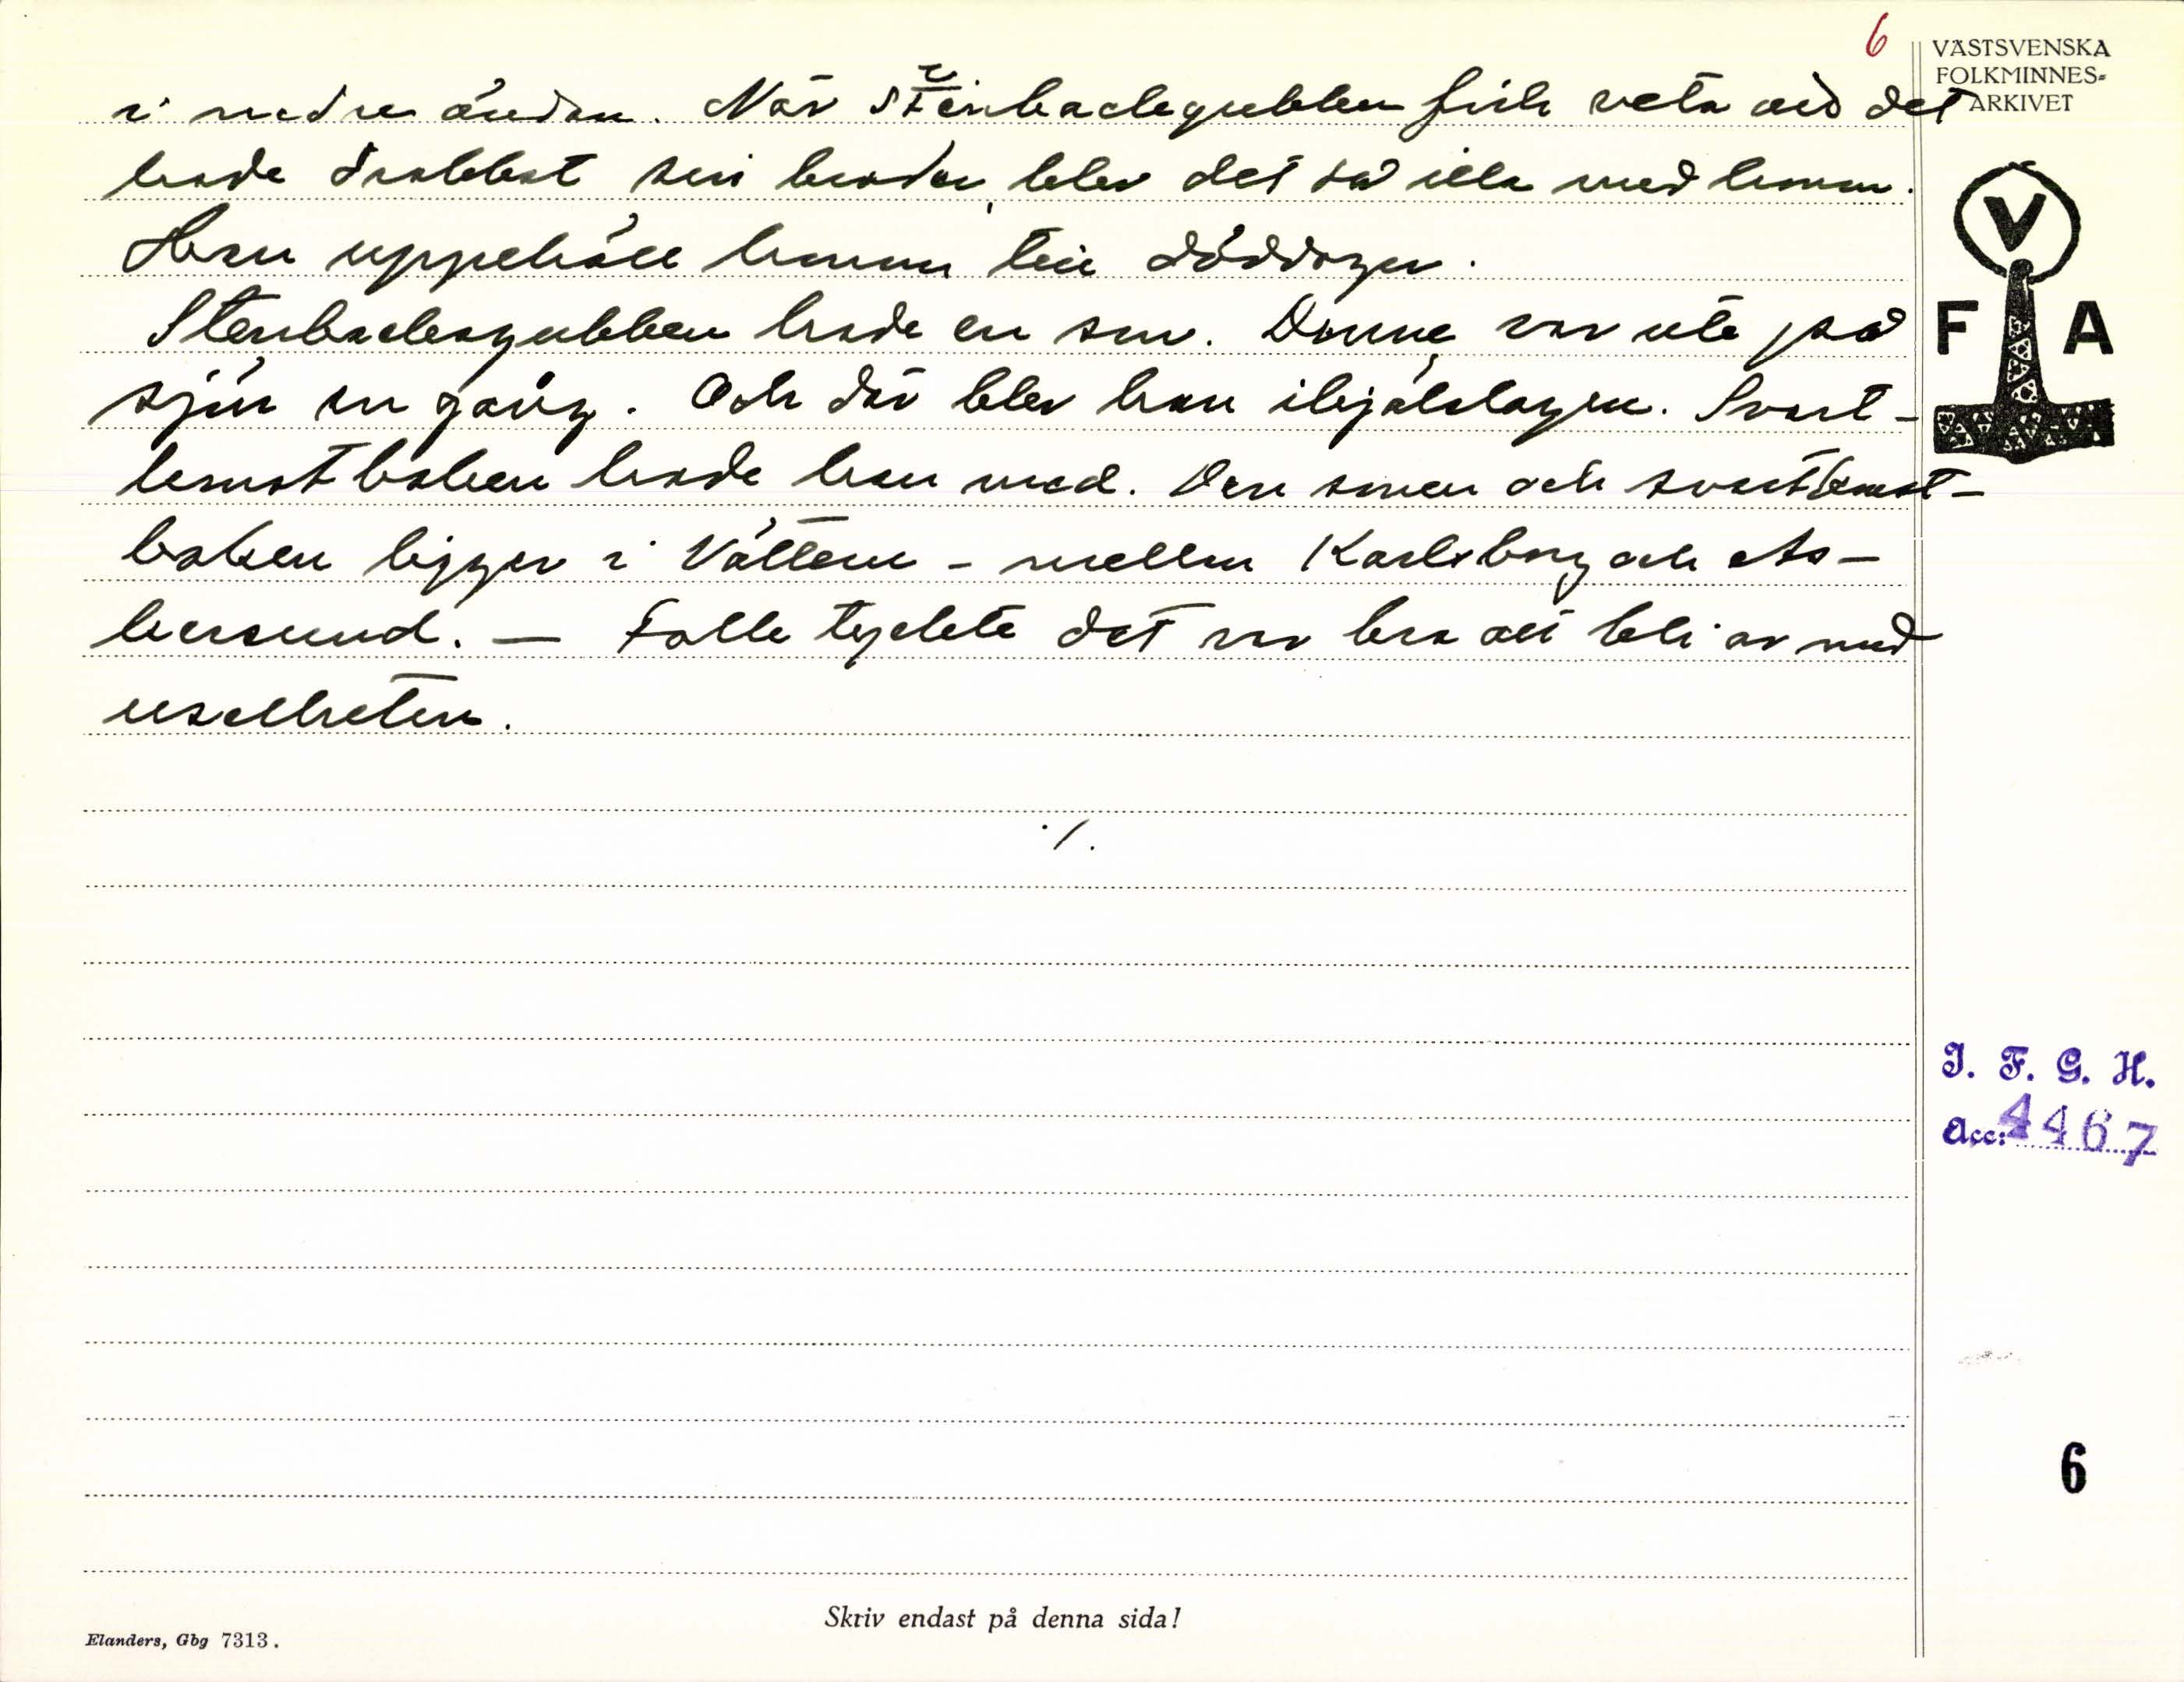 6
VÄSTSVENSKA
FOLKMINNES-
ARKIVET
i nedre ändan. När Stenbacksgubben fick veta vad det
hade drabbat sin broder, blev det så illa med honom.
Han uppehöll honom till döddagar.
Stenbacksgubben hade en son. Denne var ute på
sjön en gång. Och där blev han ihjälslagen. Svart-
konstboken hade han med. Den sonen och svartkonst-
boken ligger i Vättern - mellan Karlsborg och As-
kersund. — Folk tyckte det var bra att bli av med
uselheten.
./.
V
F A
I. F. G. H.
Acc: 4467
6
Skriv endast på denna sida!
Elanders, Gbg 7313.